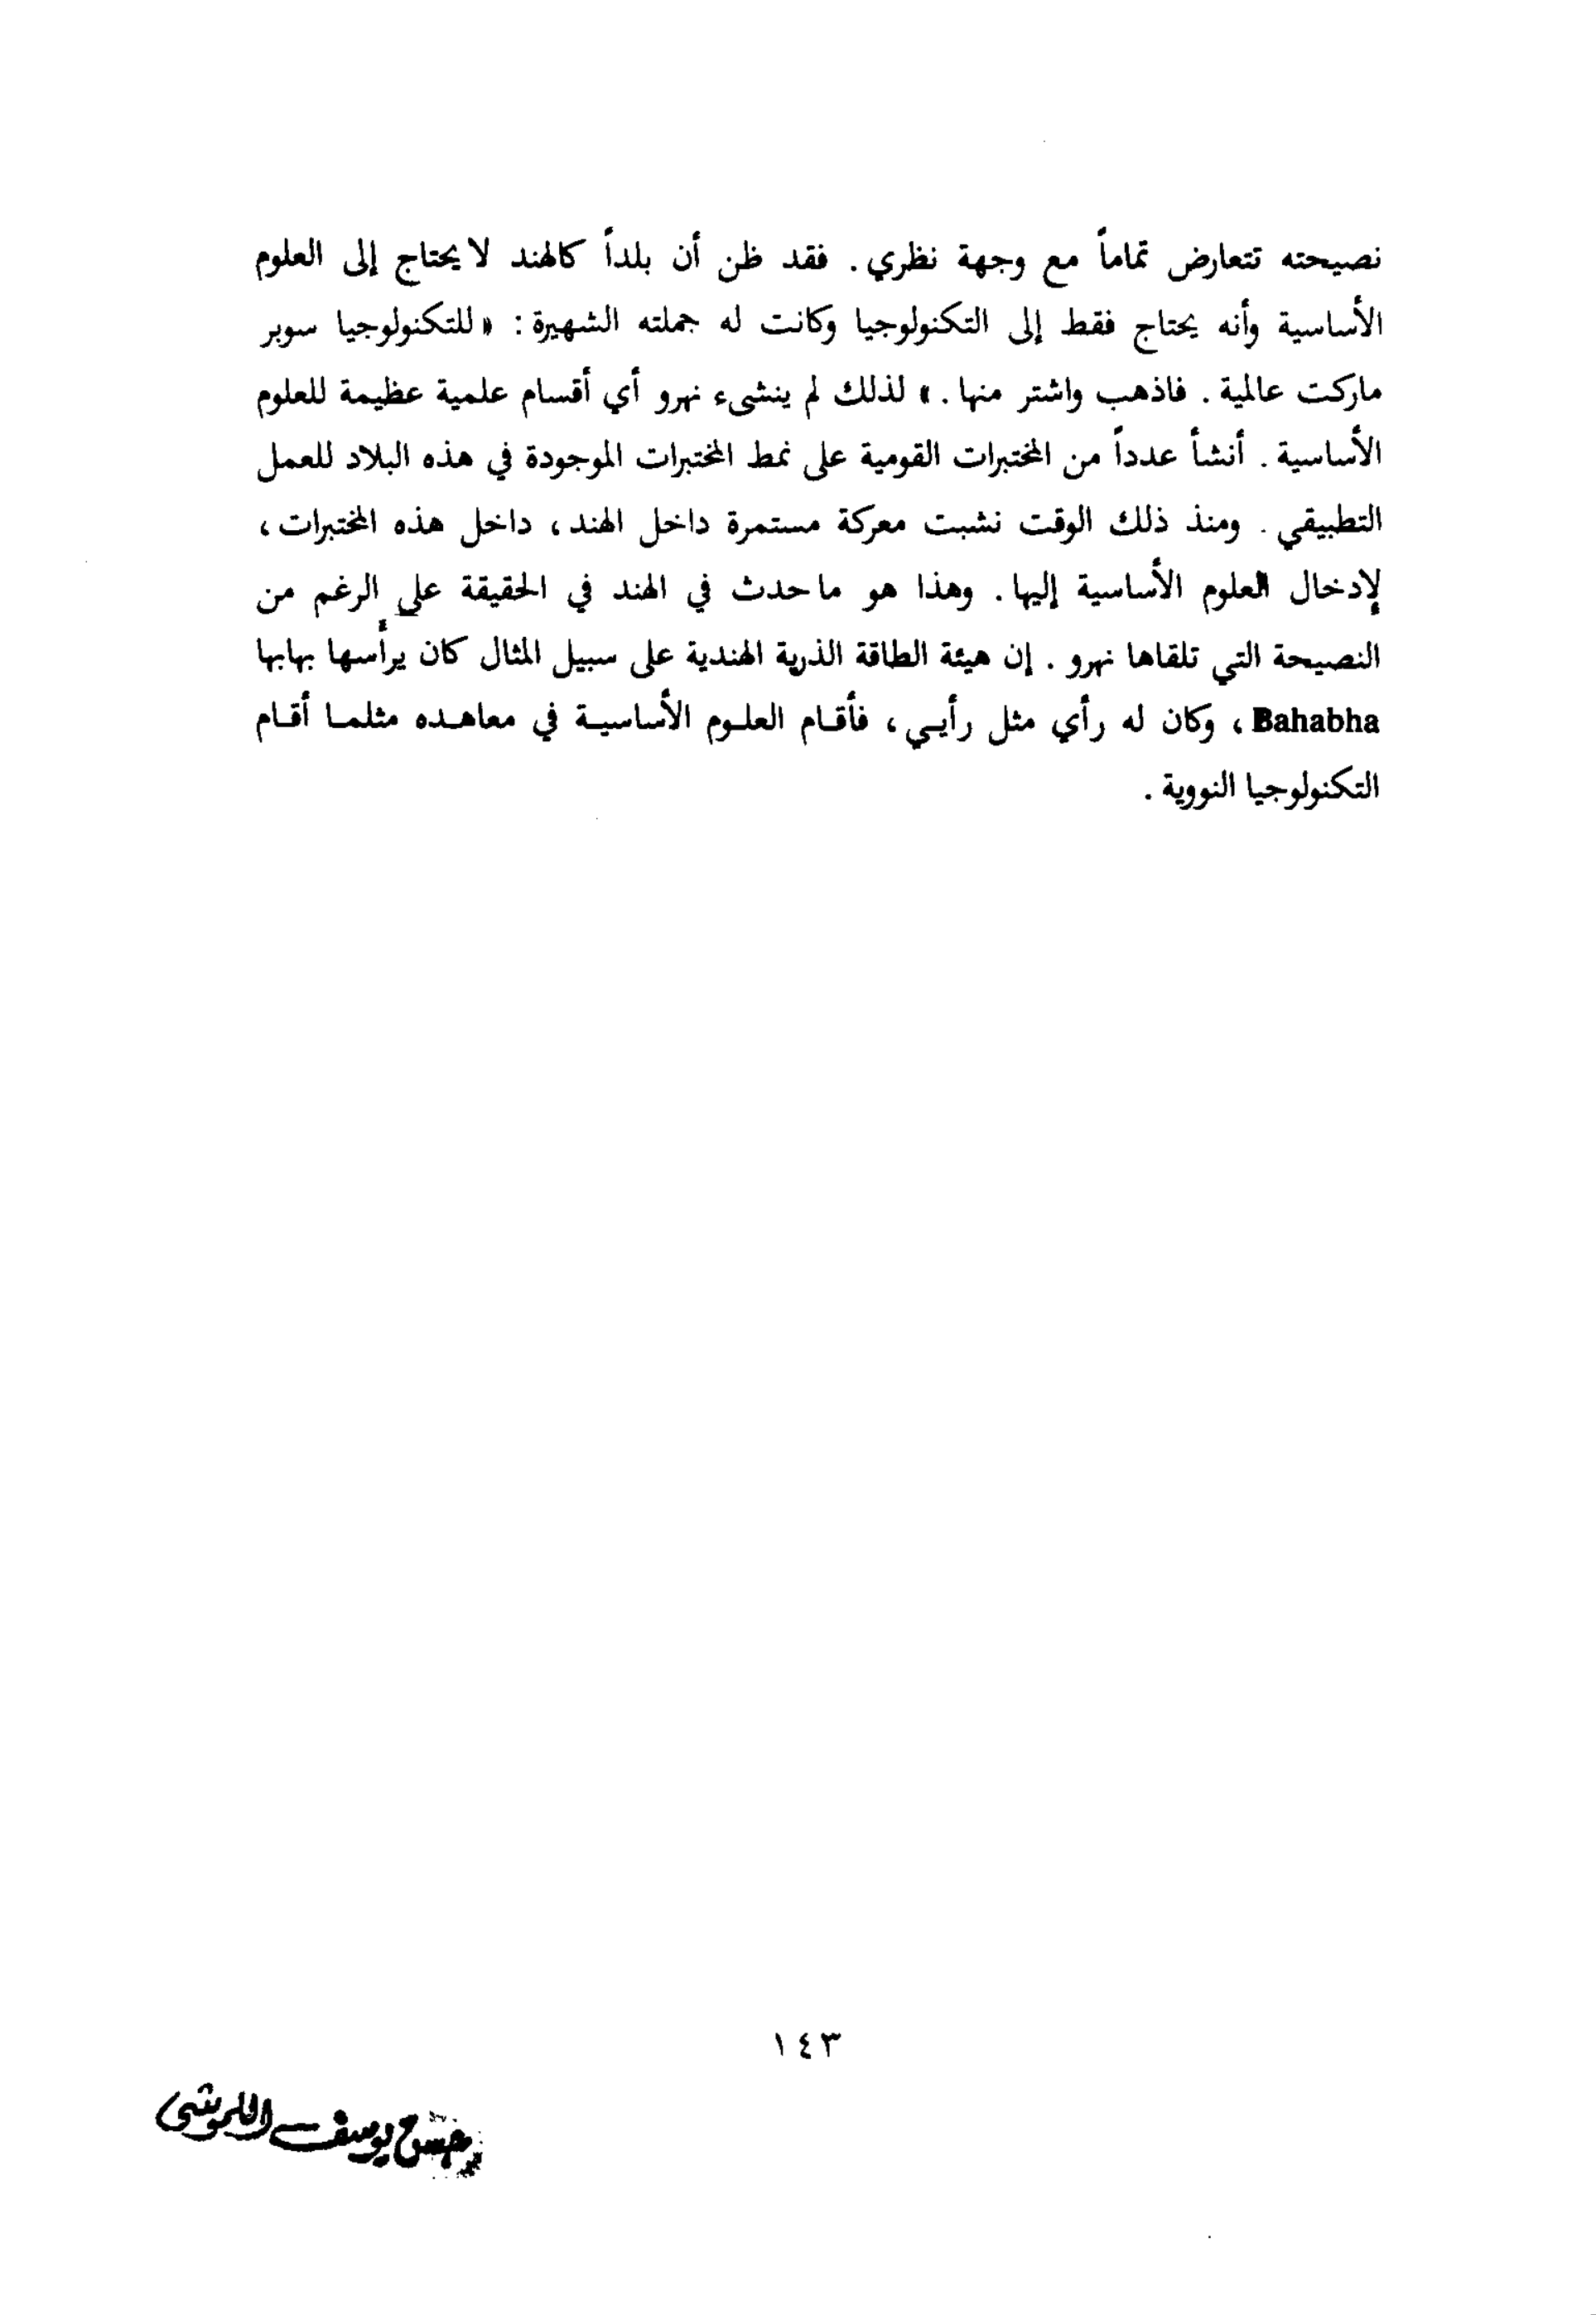 نصيحته تتعارض تماماً مع وجهة نظري . فقد ظن أن بلداً كالهند لا يحتاج إلى العلوم
الأساسية وأنه يحتاج فقط إلى التكنولوجيا وكانت له جملته الشهيرة : « للتكنولوجيا سوبر
ماركت عالمية . فاذهب واشتر منها . » لذلك لم ينشىء نهرو أي أقسام علمية عظيمة للعلوم
الأساسية . أنشأ عدداً من المختبرات القومية على نمط المختبرات الموجودة في هذه البلاد للعمل
التطبيقي . ومنذ ذلك الوقت نشبت معركة مستمرة داخل الهند ، داخل هذه المختبرات ،
لإدخال العلوم الأساسية إليها . وهذا هو ما حدث في الهند في الحقيقة على الرغم من
النصيحة التي تلقاها نهرو . إن هيئة الطاقة الذرية الهندية على سبيل المثال كان يرأسها بهابها
Bahabha ، وكان له رأي مثل رأيي ، فأقام العلوم الأساسية في معاهده مثلما أقام
التكنولوجيا النووية .
١٤٣
يوسف